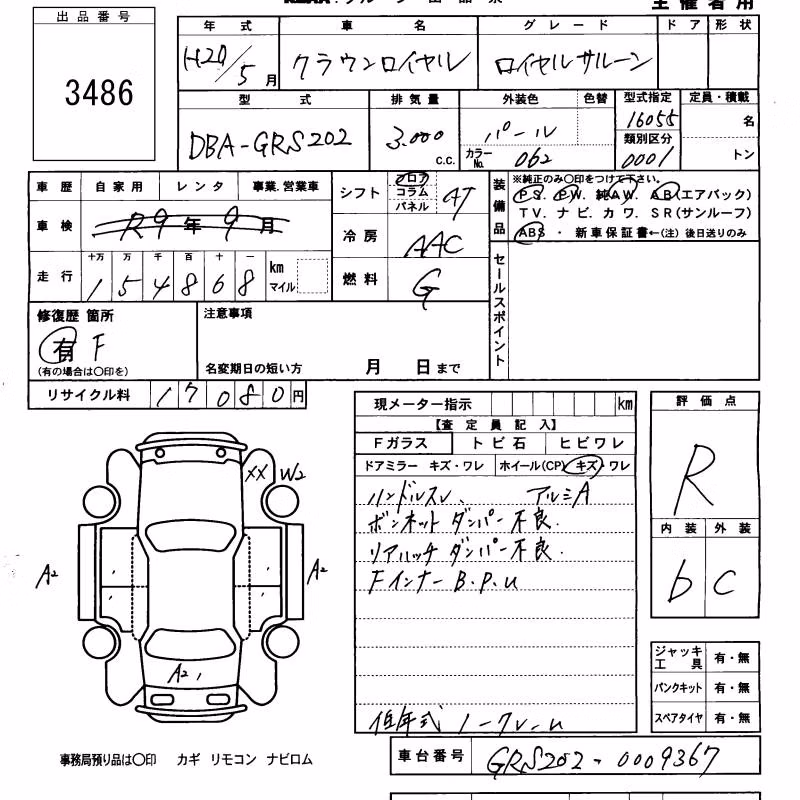 主催者用
出品番号
3486
年式 車名 グレード ドア 形状
H20/5月 クラウンロイヤル ロイヤルサルーン
型式 排気量 外装色 色替 型式指定 定員・積載
DBA-GRS202 3.000 c.c. パール 16055 名
カラーNo. 062 類別区分 0001 トン
車歴 自家用 レンタ 事業.営業車
車検 R9年9月
走行 十万 万 千 百 十 一
154868 km マイル
シフト フロア コラム パネル AT
冷房 AAC
燃料 G
装備品 ※純正のみ○印をつけて下さい。
PS. PW. 純AW. AB(エアバック)
TV. ナビ. カワ. SR(サンルーフ)
ABS ・ 新車保証書←(注) 後日送りのみ
セールスポイント
修復歴 箇所
有 F
(有の場合は○印を)
注意事項
名変期日の短い方 月 日まで
リサイクル料 17080円
現メーター指示 km
【査定員記入】
Fガラス トビ石 ヒビワレ
ドアミラー キズ・ワレ ホイール(CP) キズ・ワレ
ハンドルスレ、 アルミA
ボンネットダンパー不良.
リアハッチダンパー不良.
FインナーB.P.u
低年式 ノークレーム
評価点
R
内装 外装
b C
XX W2
A2 A2
A2,
ジャッキ工具 有・無
パンクキット 有・無
スペアタイヤ 有・無
事務局預り品は○印 カギ リモコン ナビロム
車台番号 GRS202-0009367